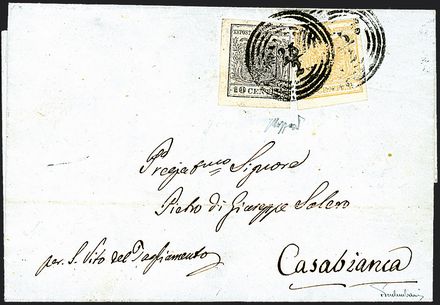 10 CENT
Pregiat.mo Signore
Pietro di Giuseppe Solero
per S. Vito del Tagliamento
Casabianca